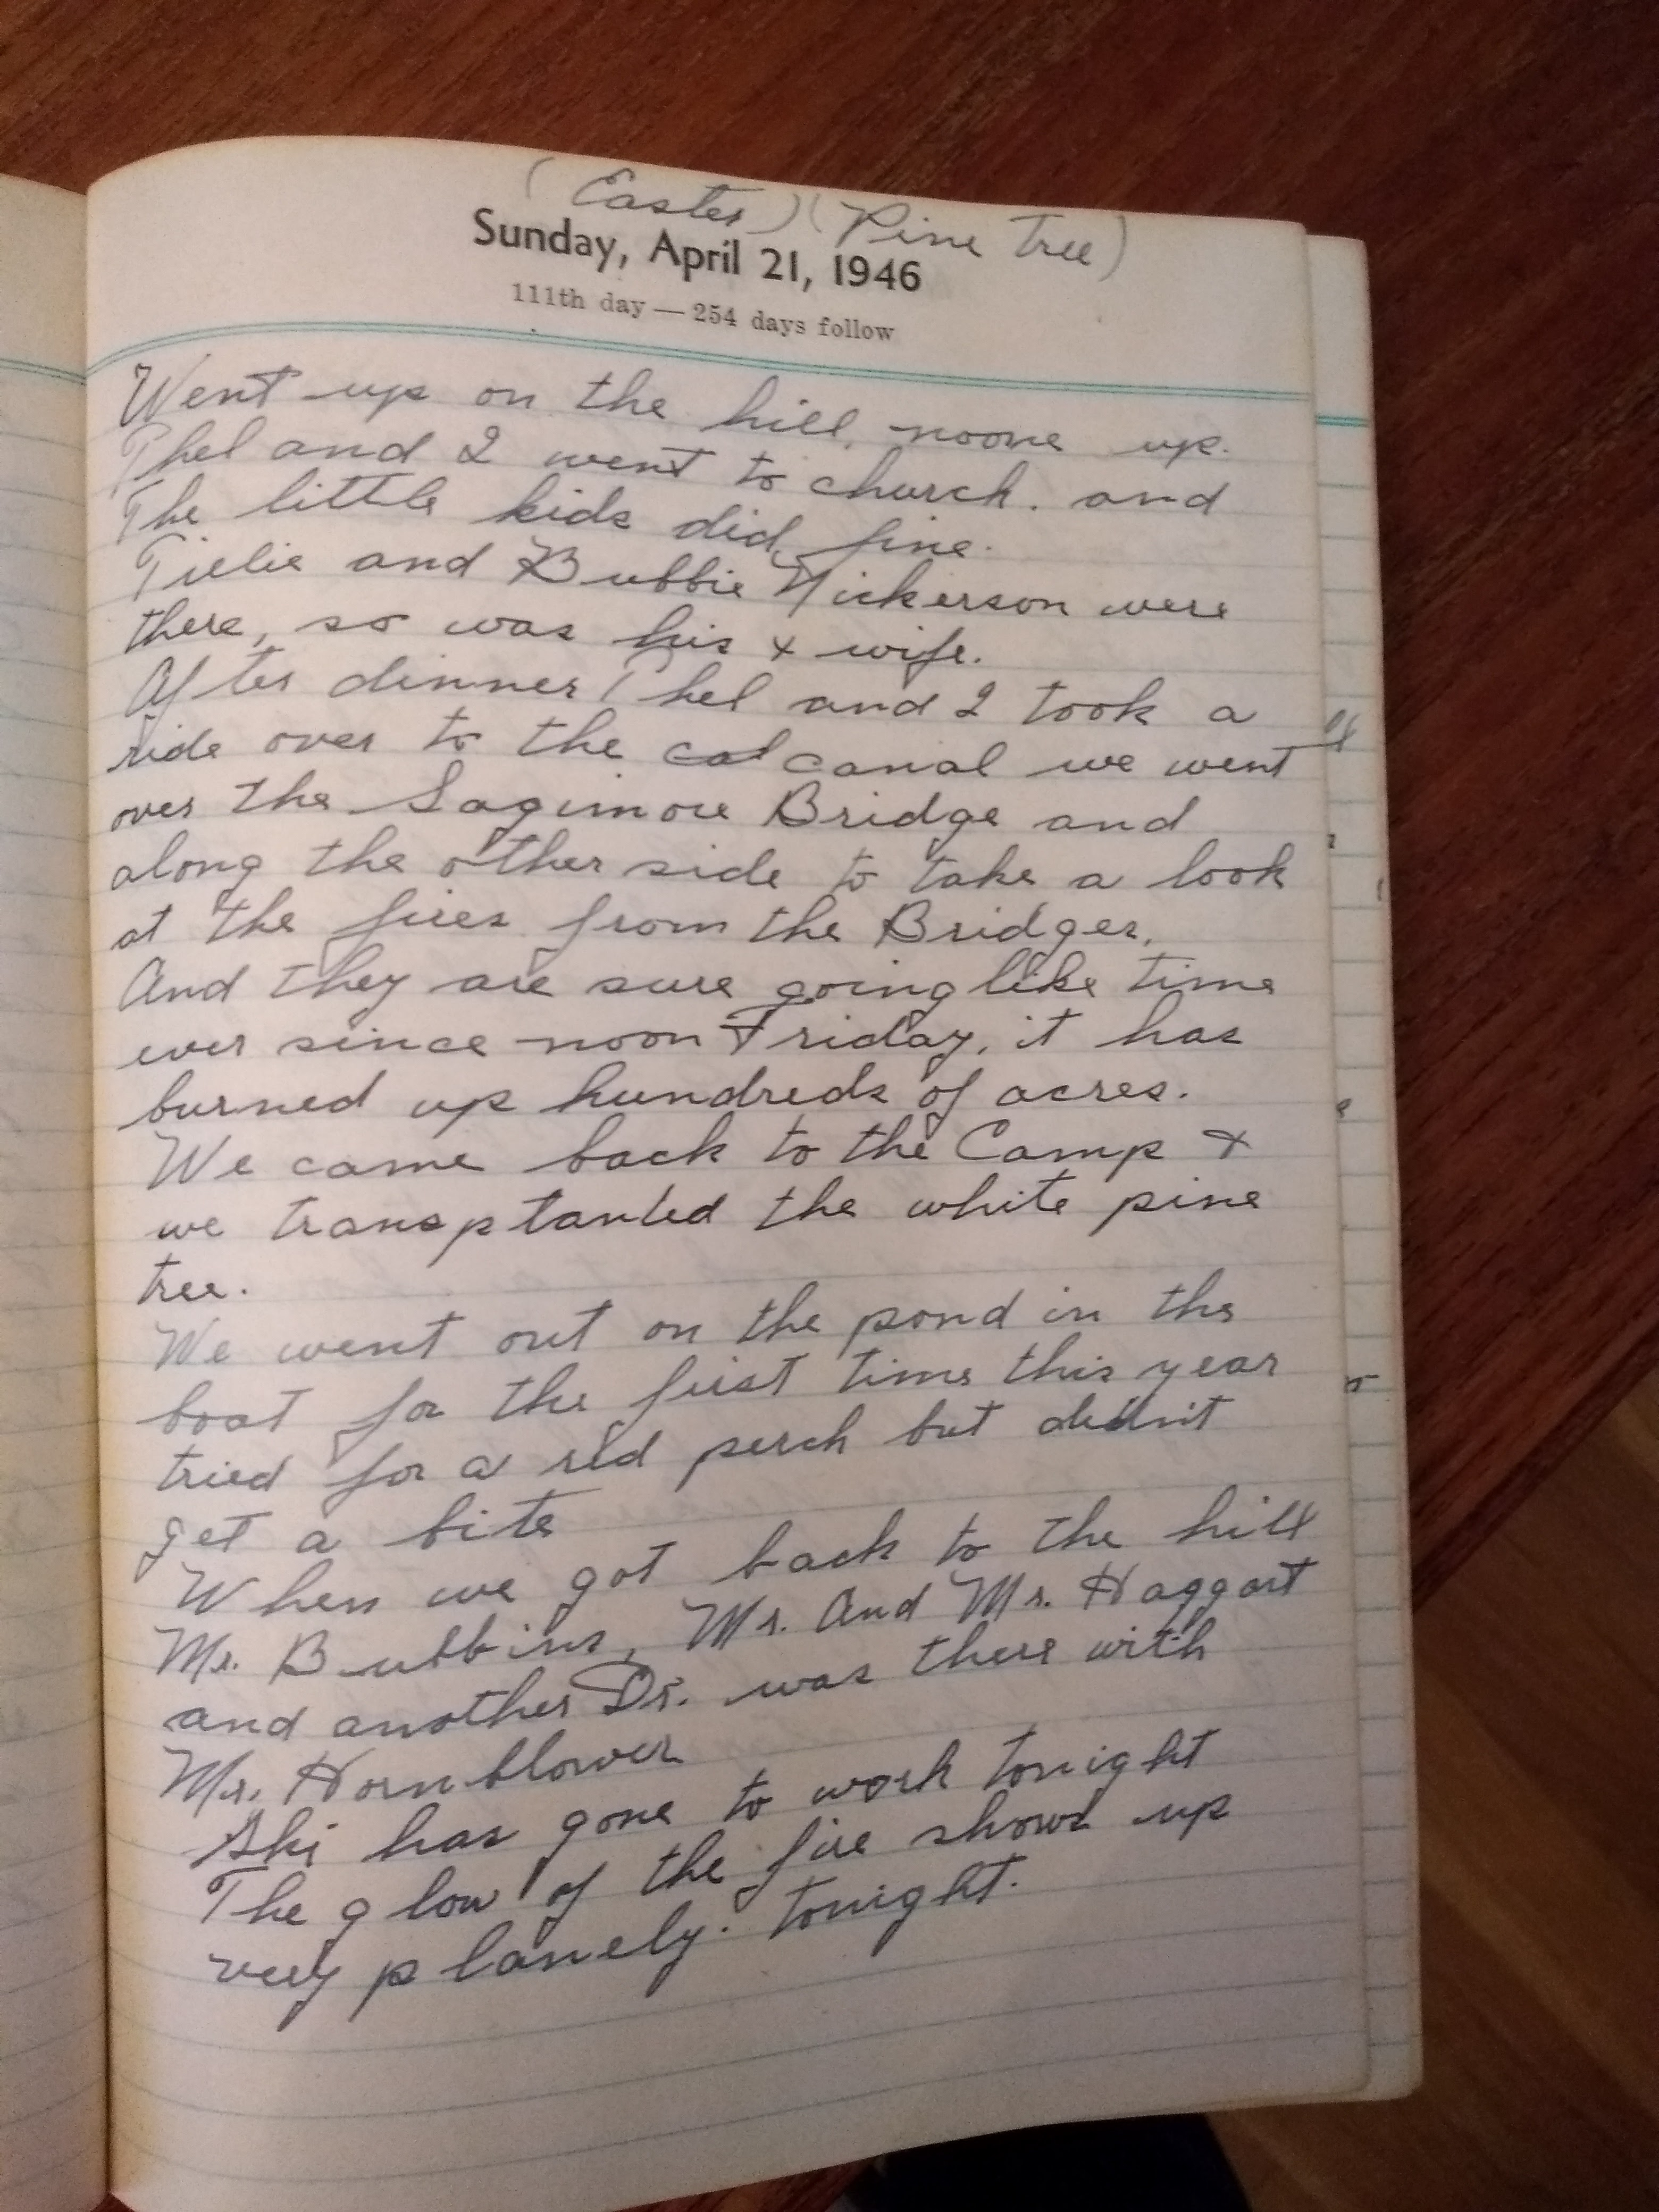 (Easter) (Pine Tree)
Sunday, April 21, 1946
111th day — 254 days follow
Went up on the hill, noone up.
Phel and I went to church. and
The little kids did fine.
Tielie and Bubbie Nickerson were
there, so was his x wife.
After dinner Phel and I took a
ride over to the cal canal we went
over the Sagimore Bridge and
along the other side to take a look
at the fires from the Bridges.
And they are sure going like time
ever since noon Friday, it has
burned up hundreds of acres.
We came back to the Camp +
we transptanted the white pine
tree.
We went out on the pond in the
boat for the first time this year
tried for a red perch but didn't
get a bite
When we got back to the hill
Mr. Bubbins, Mr. And Mr. Haggart
and another Dr. was there with
Mr. Hornblower
Ski has gone to work tonight
The glow of the fire shows up
very planely. tonight.